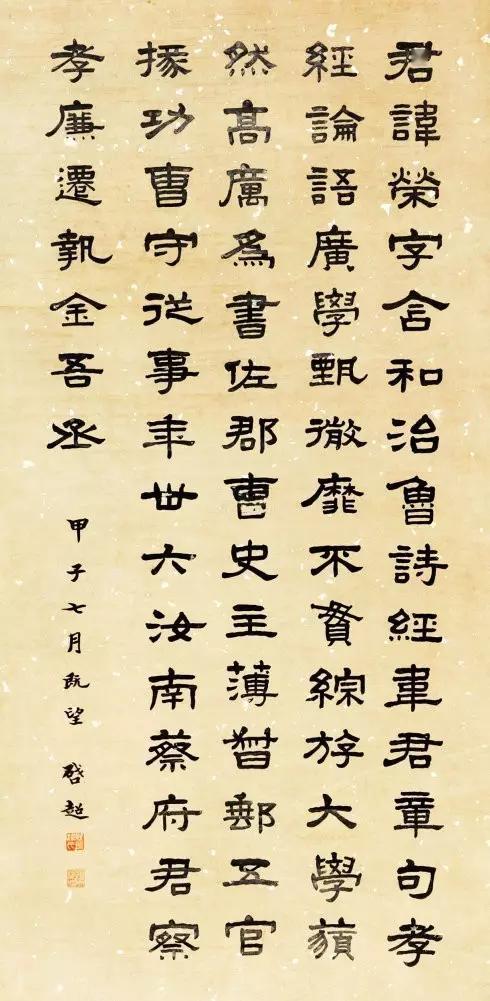 君諱榮字含和治魯詩經韋君章句孝
經論語廣學甄徹靡不貫綜斿大學蘋
然高厲為書佐郡曹史主薄督郵五官
掾功曹守從事年卅六汝南蔡府君察
孝廉遷執金吾丞
甲子七月既望 啓超